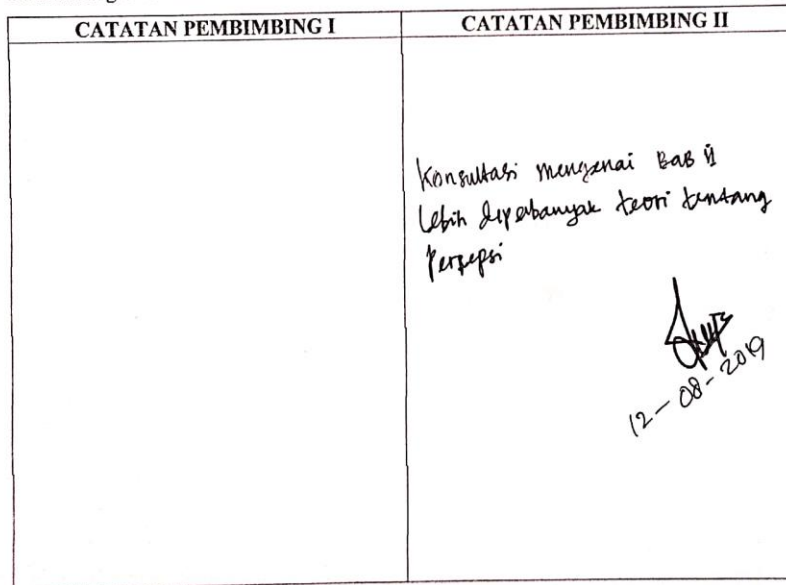 CATATAN PEMBIMBING I
CATATAN PEMBIMBING II
Konsultasi mengenai BAB II
Lebih diperbanyak teori tentang
Persepsi
12-08-2019